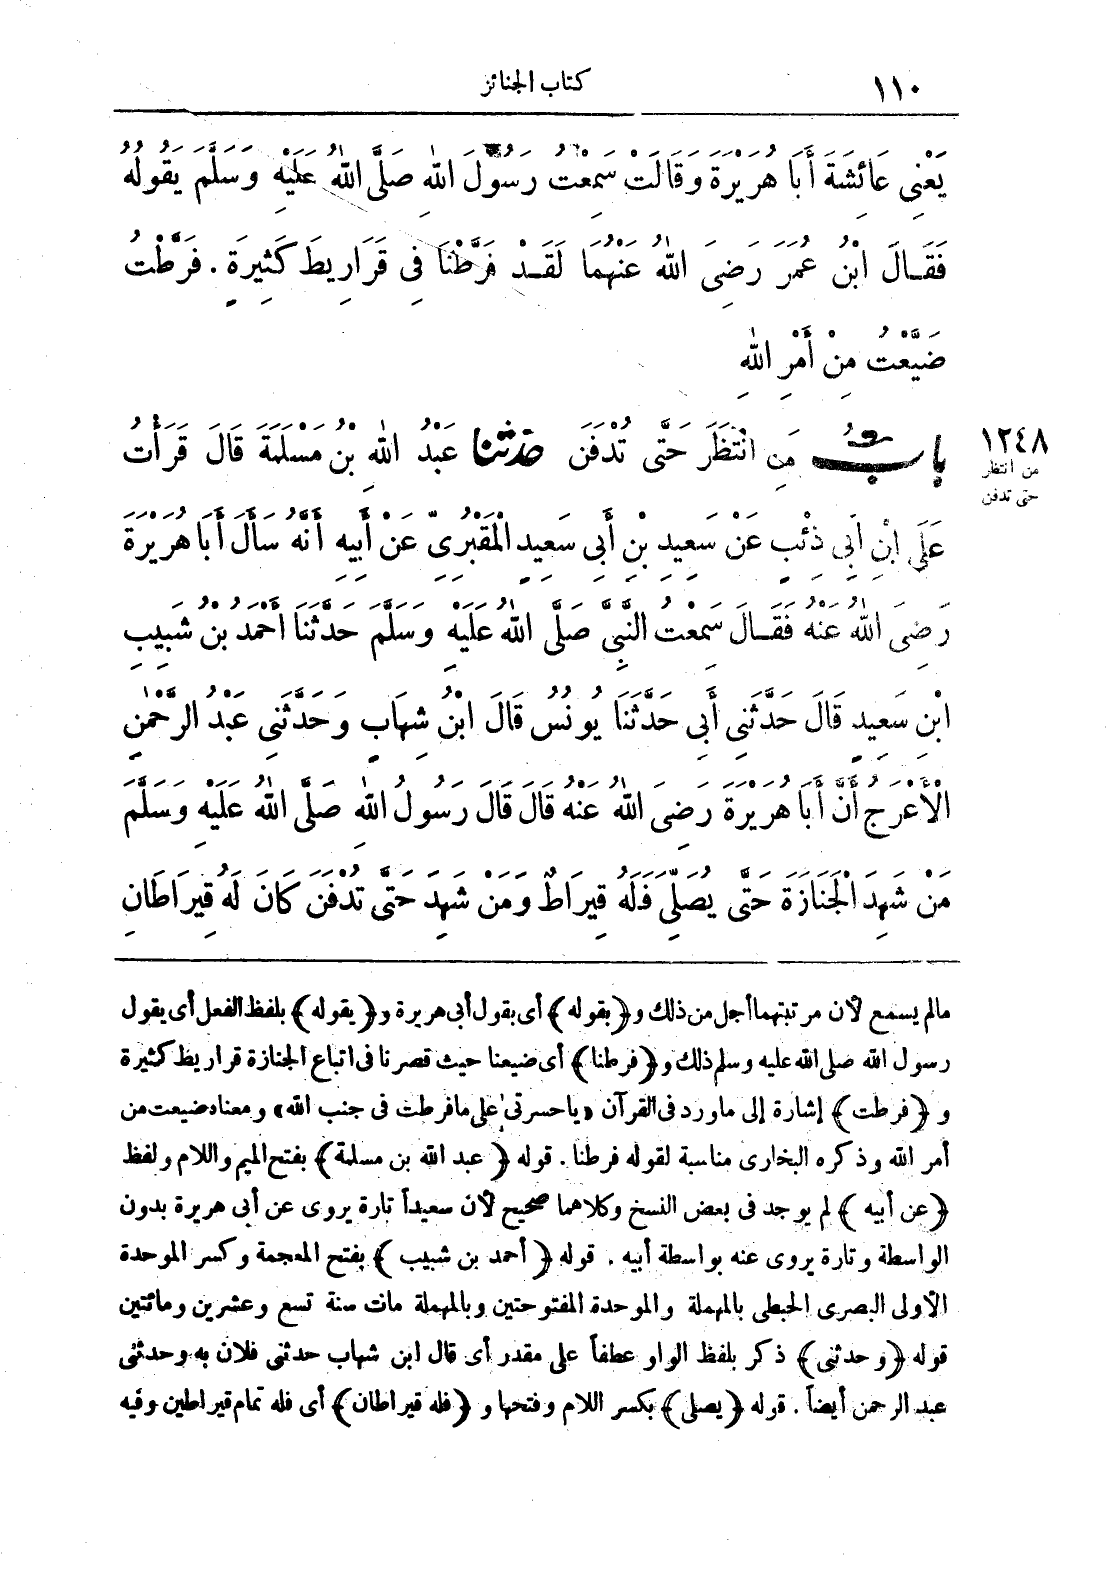 ١١٠
كتاب الجنائز
يَعْنِى عَائِشَةَ أَبَا هُرَيْرَةَ وَقَالَتْ سَمِعْتُ رَسُولَ اللهِ صَلَّى اللهُ عَلَيْهِ وَسَلَّمَ يَقُولُهُ
فَقَالَ ابْنُ عُمَرَ رَضِىَ اللهُ عَنْهُمَا لَقَدْ فَرَّطْنَا فِى قَرَارِيطَ كَثِيرَةٍ . فَرَّطْتُ
ضَيَّعْتُ مِنْ أَمْرِ اللهِ
بابُ مَنِ انْتَظَرَ حَتَّى تُدْفَنَ حدثنا عَبْدُ اللهِ بْنُ مَسْلَمَةَ قَالَ قَرَأْتُ
١٢٤٨
من انتظر
حتى تدفن
عَلَى ابْنِ أَبِى ذِئْبٍ عَنْ سَعِيدِ بْنِ أَبِى سَعِيدٍ الْمَقْبُرِىِّ عَنْ أَبِيهِ أَنَّهُ سَأَلَ أَبَا هُرَيْرَةَ
رَضِىَ اللهُ عَنْهُ فَقَالَ سَمِعْتُ النَّبِىَّ صَلَّى اللهُ عَلَيْهِ وَسَلَّمَ حَدَّثَنَا أَحْمَدُ بْنُ شَبِيبِ
ابْنِ سَعِيدٍ قَالَ حَدَّثَنِى أَبِى حَدَّثَنَا يُونُسُ قَالَ ابْنُ شِهَابٍ وَحَدَّثَنِى عَبْدُ الرَّحْمٰنِ
الْأَعْرَجُ أَنَّ أَبَا هُرَيْرَةَ رَضِىَ اللهُ عَنْهُ قَالَ قَالَ رَسُولُ اللهِ صَلَّى اللهُ عَلَيْهِ وَسَلَّمَ
مَنْ شَهِدَ الْجَنَازَةَ حَتَّى يُصَلِّىَ فَلَهُ قِيرَاطٌ وَمَنْ شَهِدَ حَتَّى تُدْفَنَ كَانَ لَهُ قِيرَاطَانِ
مالم يسمع لأن مرتبتهما أجل من ذلك و﴿بقوله﴾ أى بقول أبى هريرة و﴿يقوله﴾ بلفظ الفعل أى يقول
رسول الله صلى الله عليه وسلم ذلك و﴿فرطنا﴾ أى ضيعنا حيث قصرنا فى اتباع الجنازة قراريط كثيرة
و﴿فرطت﴾ إشارة إلى ماورد فى القرآن «ياحسرتى على مافرطت فى جنب الله» ومعناه ضيعت من
أمر الله وذكره البخارى مناسبة لقوله فرطنا . قوله ﴿عبد الله بن مسلمة﴾ بفتح الميم واللام ولفظ
﴿عن أبيه﴾ لم يوجد فى بعض النسخ وكلاهما صحيح لأن سعيداً تارة يروى عن أبى هريرة بدون
الواسطة وتارة يروى عنه بواسطة أبيه . قوله ﴿أحمد بن شبيب﴾ بفتح المعجمة وكسر الموحدة
الأولى البصرى الحبطى بالمهملة والموحدة المفتوحتين وبالمهملة مات سنة تسع وعشرين ومائتين
قوله ﴿وحدثنى﴾ ذكر بلفظ الواو عطفاً على مقدر أى قال ابن شهاب حدثنى فلان به وحدثنى
عبد الرحمن أيضاً . قوله ﴿يصلى﴾ بكسر اللام وفتحها و﴿فله قيراطان﴾ أى فله تمام قيراطين وفيه